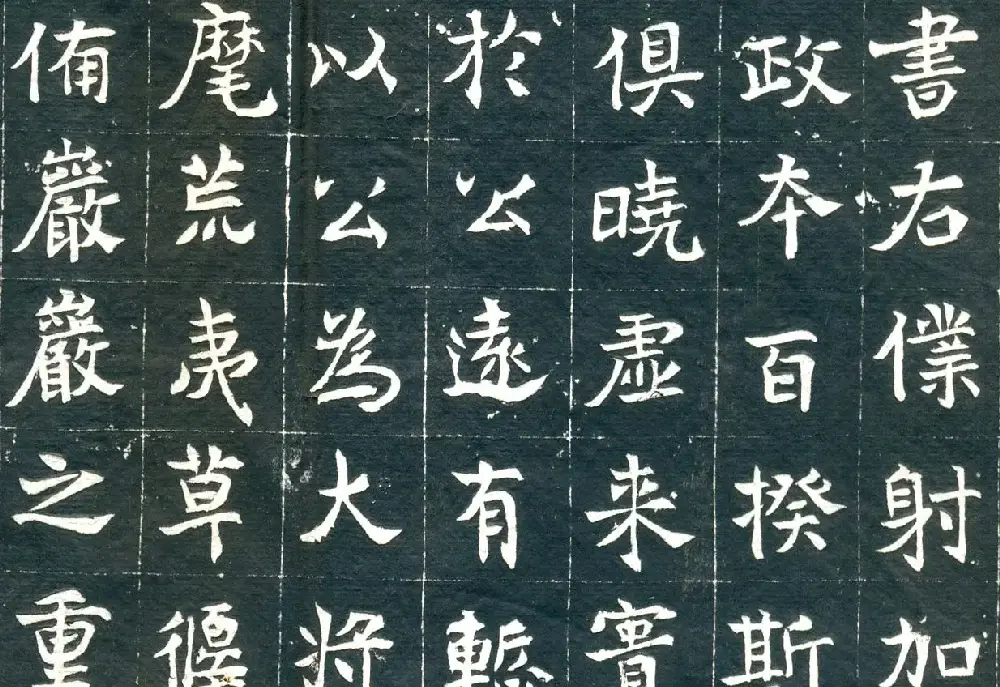 書右僕射加
政本百揆斯
俱曉虛来實
於公遠有慙
以公為大將
麾荒夷草偃
備巖巖之重